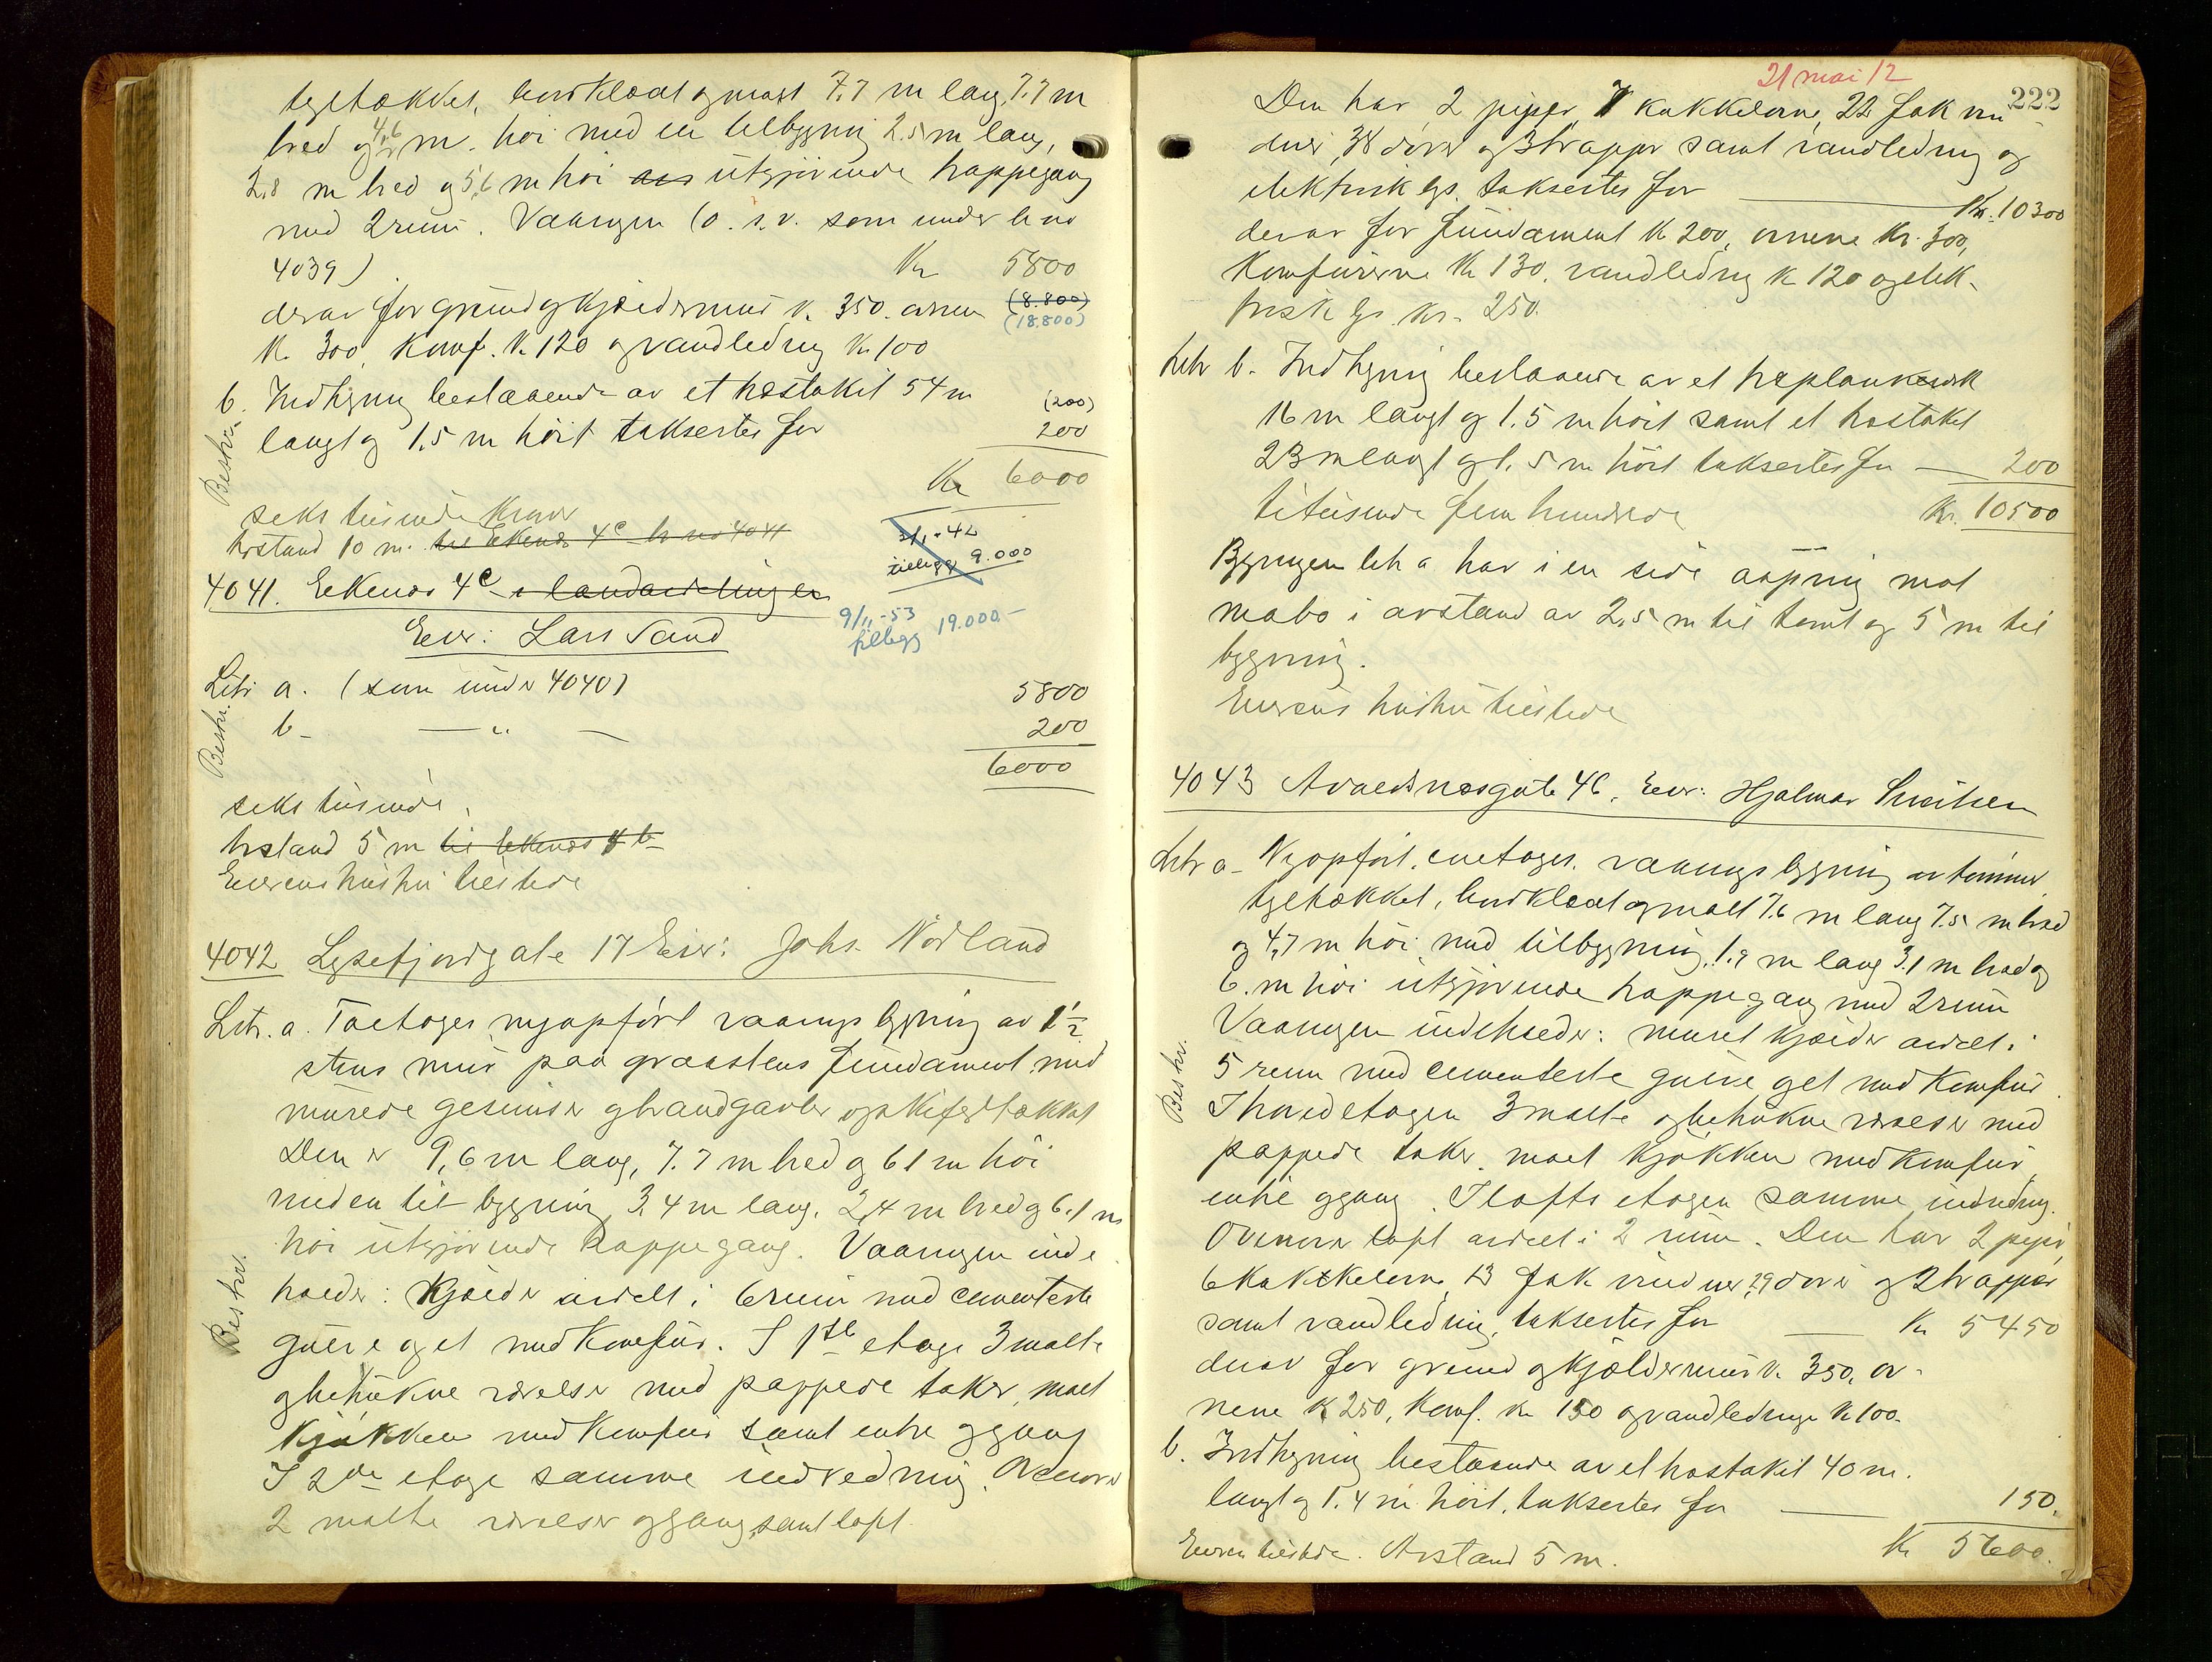 teglt&aelig;kket, bordkl&aelig;dt og malt 7.7 m lang, 7.7 m
bred og 4,6 m. høi med en tilbygning 2.5 m lang,
2,8 m bred og 5,6 m høi utgjørende trappegang
med 2 rum. Vaaningen (o. s. v. som under br no
4039) Kr 5800
derav for grund og kjældermur k. 350. ovnen (8.800)
(18.800)
K. 300, Komf. K. 120 og vandledning Kr 100
b. Indhegning bestaaende av et træstakit 54 m (200)
langt og 1.5 m høit taksertes for 200
Beskr.
Kr 6000
seks tusinde kroner
Avstand 10 m. til Ekenæs 4c br no 4041
2/1-42
tillegg 9.000
4041. Eekenæs 4c i landavdelingen
9/11-53
tillegg 19.000.-
Eier: Lars Sand
Litr a. (som under 4040) 5800
b - — " — 200
Beskr.
6000
seks tusinde,
Avstand 5 m til Ekenæs 4 b
Eierens hustru tilstede
4042 Lysefjordgate 17 Eier: Johs. Nordland
Litr. a. Toetages nyopført vaaningsbygning av 1½
stens mur paa graastens fundament med
murede gesimser og brandgavler og skifertækket
Den er 9,6 m lang, 7.7 m bred og 6.1 m høi
med en tilbygning 3,4 m lang, 2,4 m bred og 6.1 m
høi utgjørende trappegang. Vaaningen inde
holder: Kjælder avdelt i 6 rum med cementerte
gulve og et med Komfur. I 1ste etage 3 malte
Beskr.
og betrukne værelser med pappede taker, malt
kjøkken med Komfur samt entre og gang
I 2den etage samme indredning. Ovenover
2 malte værelser og gang samt loft.
21 mai 12
222
Den har 2 piper, 7 kakkelovne, 22 fak vin
duer, 38 døre og 3 trapper samt vandledning og
elektrisk lys taksertes for Kr. 10300
derav for fundament K 200, ovnene Kr. 300,
Komfurerne Kr 130, vandledning K 120 og elek-
trisk lys kr. 250.
Litr b. Indhegning bestaaende av et træplankeverk
16 m langt og 1.5 m høit samt et træstaket
23 m langt og 1.5 m høit taksertes for — 200
titusinde fem hundrede Kr. 10500
Bygningen litr a har i en side aapning mot
nabo i avstand av 2,5 m til tomt og 5 m til
bygning.
Eierens hustru tilstede
4043 Avaldsnesgate 46, Eier: Hjalmar
Litr a - Nyopført enetages vaaningsbygning av tømmer
teglt&aelig;kket, bordklædt og malt 7.6 m lang 7.5 m bred
og 4,7 m høi med tilbygning 1.9 m lang 3.1 m bred og
6. m høi utgjørende trappegang med 2 rum
Vaaningen indeholder: muret kjælder avdelt i
5 rum med cementerte gulve og et med Komfur.
Beskr.
I hovedetagen 3 malte og betrukne værelser med
pappede taker, malt kjøkken med Komfur,
entre og gang. I loftsetagen samme indredning.
Ovenover loft avdelt i 2 rum. Den har 2 piper,
6 Kakkelovne, 13 fak vinduer, 29 døre og 2 trapper
samt vandledning, taksertes for — Kr 5450
derav for grund og kjældermur k. 350, ov-
nene K 250, Komf. kr 150 og vandledninge K 100.
b. Indhegning bestaaende av et træstakit 40 m.
langt og 1.4 m høit, taksertes for — 150.
Eieren tilstede. Avstand 5 m. Kr 5600.